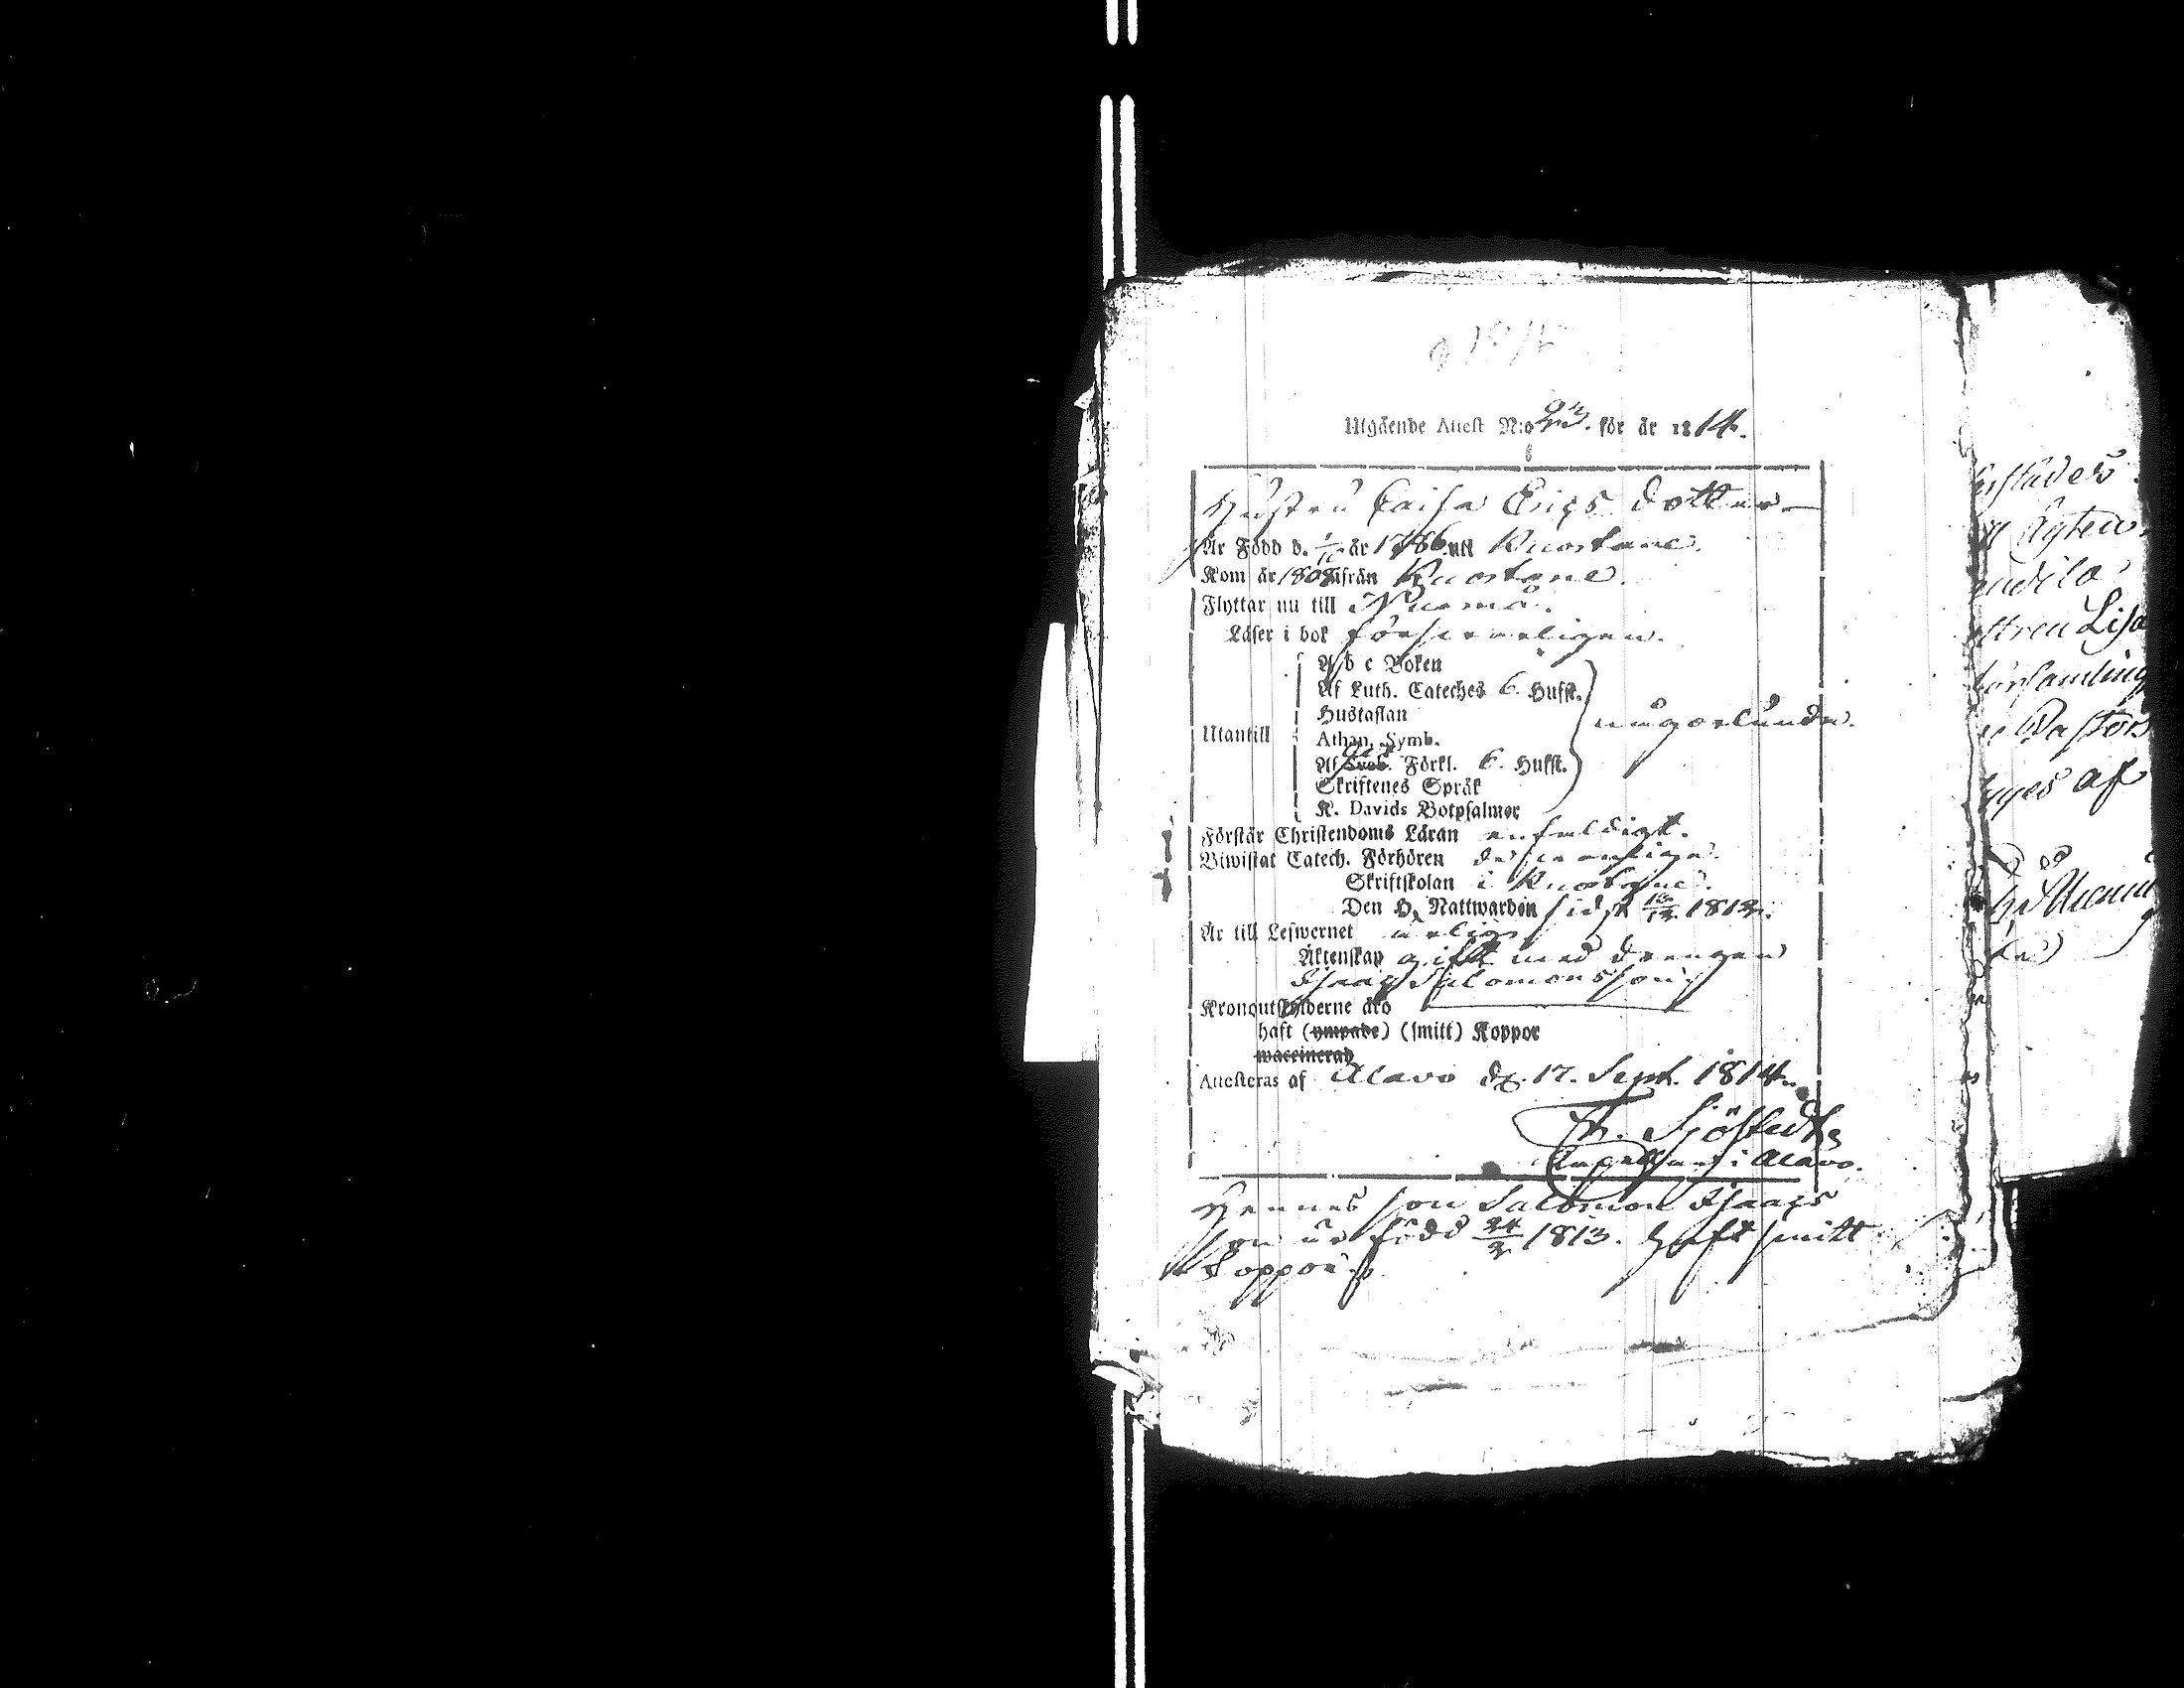 Utgående Attest N:o 23. för år 1814.
Hustru Caisa Erics dotter
Är Född d. år 1786 uti Kuortane.
Kom år 1808 ifrån Kuortane.
Flyttar nu till Nurmo.
Läser i bok försvarligen.
A b c Boken
Af Luth. Cateches 6. Hufst.
Hustaflan
någorlunda.
Utantill
Athan. Symb.
Af Förkl. 6. Hufst.
Skriftenes Språk
K. Davids Botpsalmer
Förstår Christendoms Läran enfaldigt.
Biwistat Catech. Förhören
Skriftskolan i Kuortane.
Den H. Nattwarden sidst 1813.
Är till Lefwernet ärlig
Äktenskap gift med drengen
Isaac Salomonsson
Kronoutskylderne äro
haft (ympade) (smitt) Koppor
waccinerad
Attesteras af Alavo d. 17. Sept. 1814.
Sjöstedt
Capellan i Alavo.
Hennes son Salomon Isaacs
son är född 24/2 1813. haft smitt
koppor
Lisa
Pastors
af